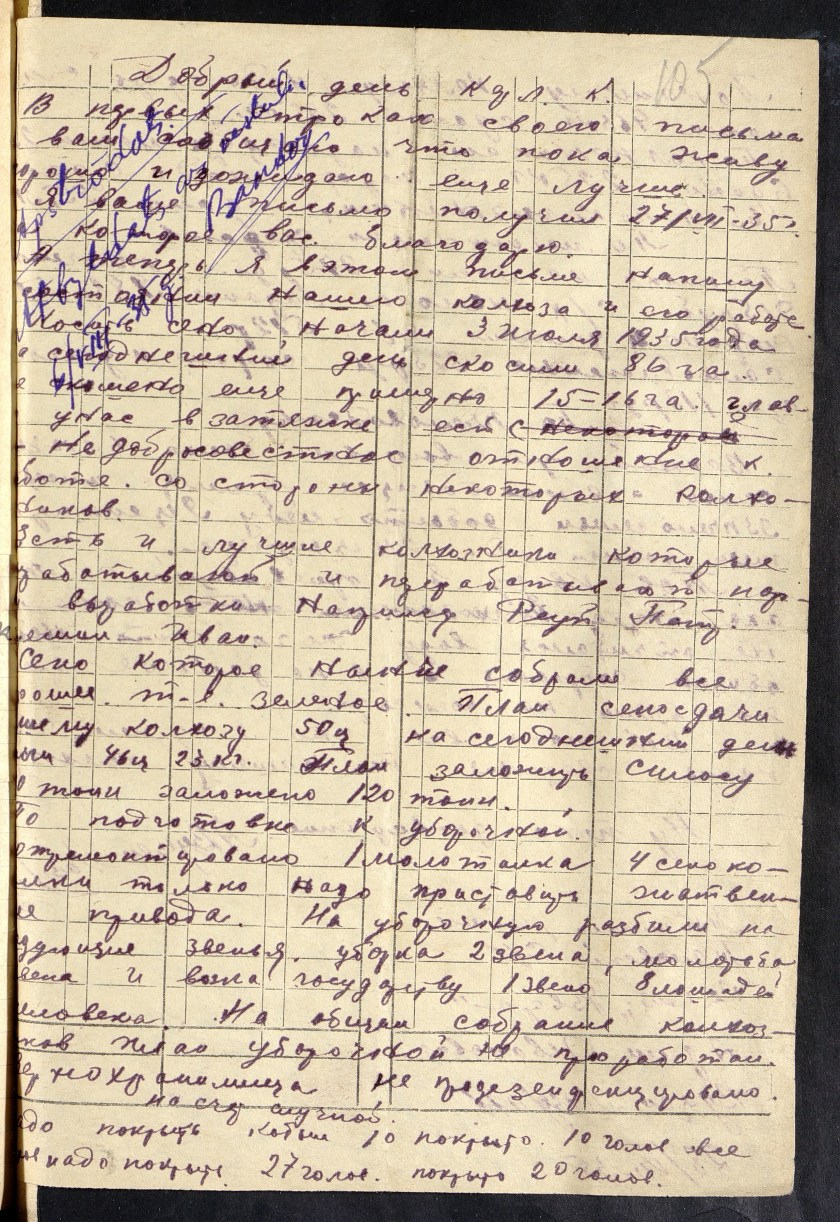 105
Добрый день К д. Л. К.
В первых строках своего письма
вам сообщаю что пока живу
и ожидаю еще лучше.
Я ваше письмо получил 27/VII-35г.
которое вас благодарю.
А теперь я в этом письме напишу
нашего колхоза и его работе
Косить сено начали 3 июля 1935 года
сегоднешний день скосили 86 га.
скошено еще примерно 15-16 га. глав-
у нас в затяжке есть некоторой
Не добросовестное отношение к
боте. со стороны некоторых колхо-
ников.
Есть и лучшие колхозники которые
рабатывают и перерабатывают нор-
выработки Например Реут Петр.
Иван.
Сено которое нынче собрали все
рошее. т-е. зеленое. План сеносдачи
шему колхозу 50 ц на сегоднешний день
46 ц 23 кг. План заложить силосу
тонн заложено 120 тонн.
По подготовке к уборочной.
отремонтировано 1 молотилка 4 сеноко-
лки только надо приставить жатвен-
е привода. На уборочную разбили на
дующие звенья. уборка 2 звена, молотьба
вена и возка государству 1 звено 8 лошадей
человека. На общем собрание колхоз-
ков план уборочной не проработан.
Зернохранилища не продезенфицировано.
на счет случной.
адо покрыть кобыл 10 покрыто. 10 голов все
надо покрыть 27 голов. покрыто 20 голов.